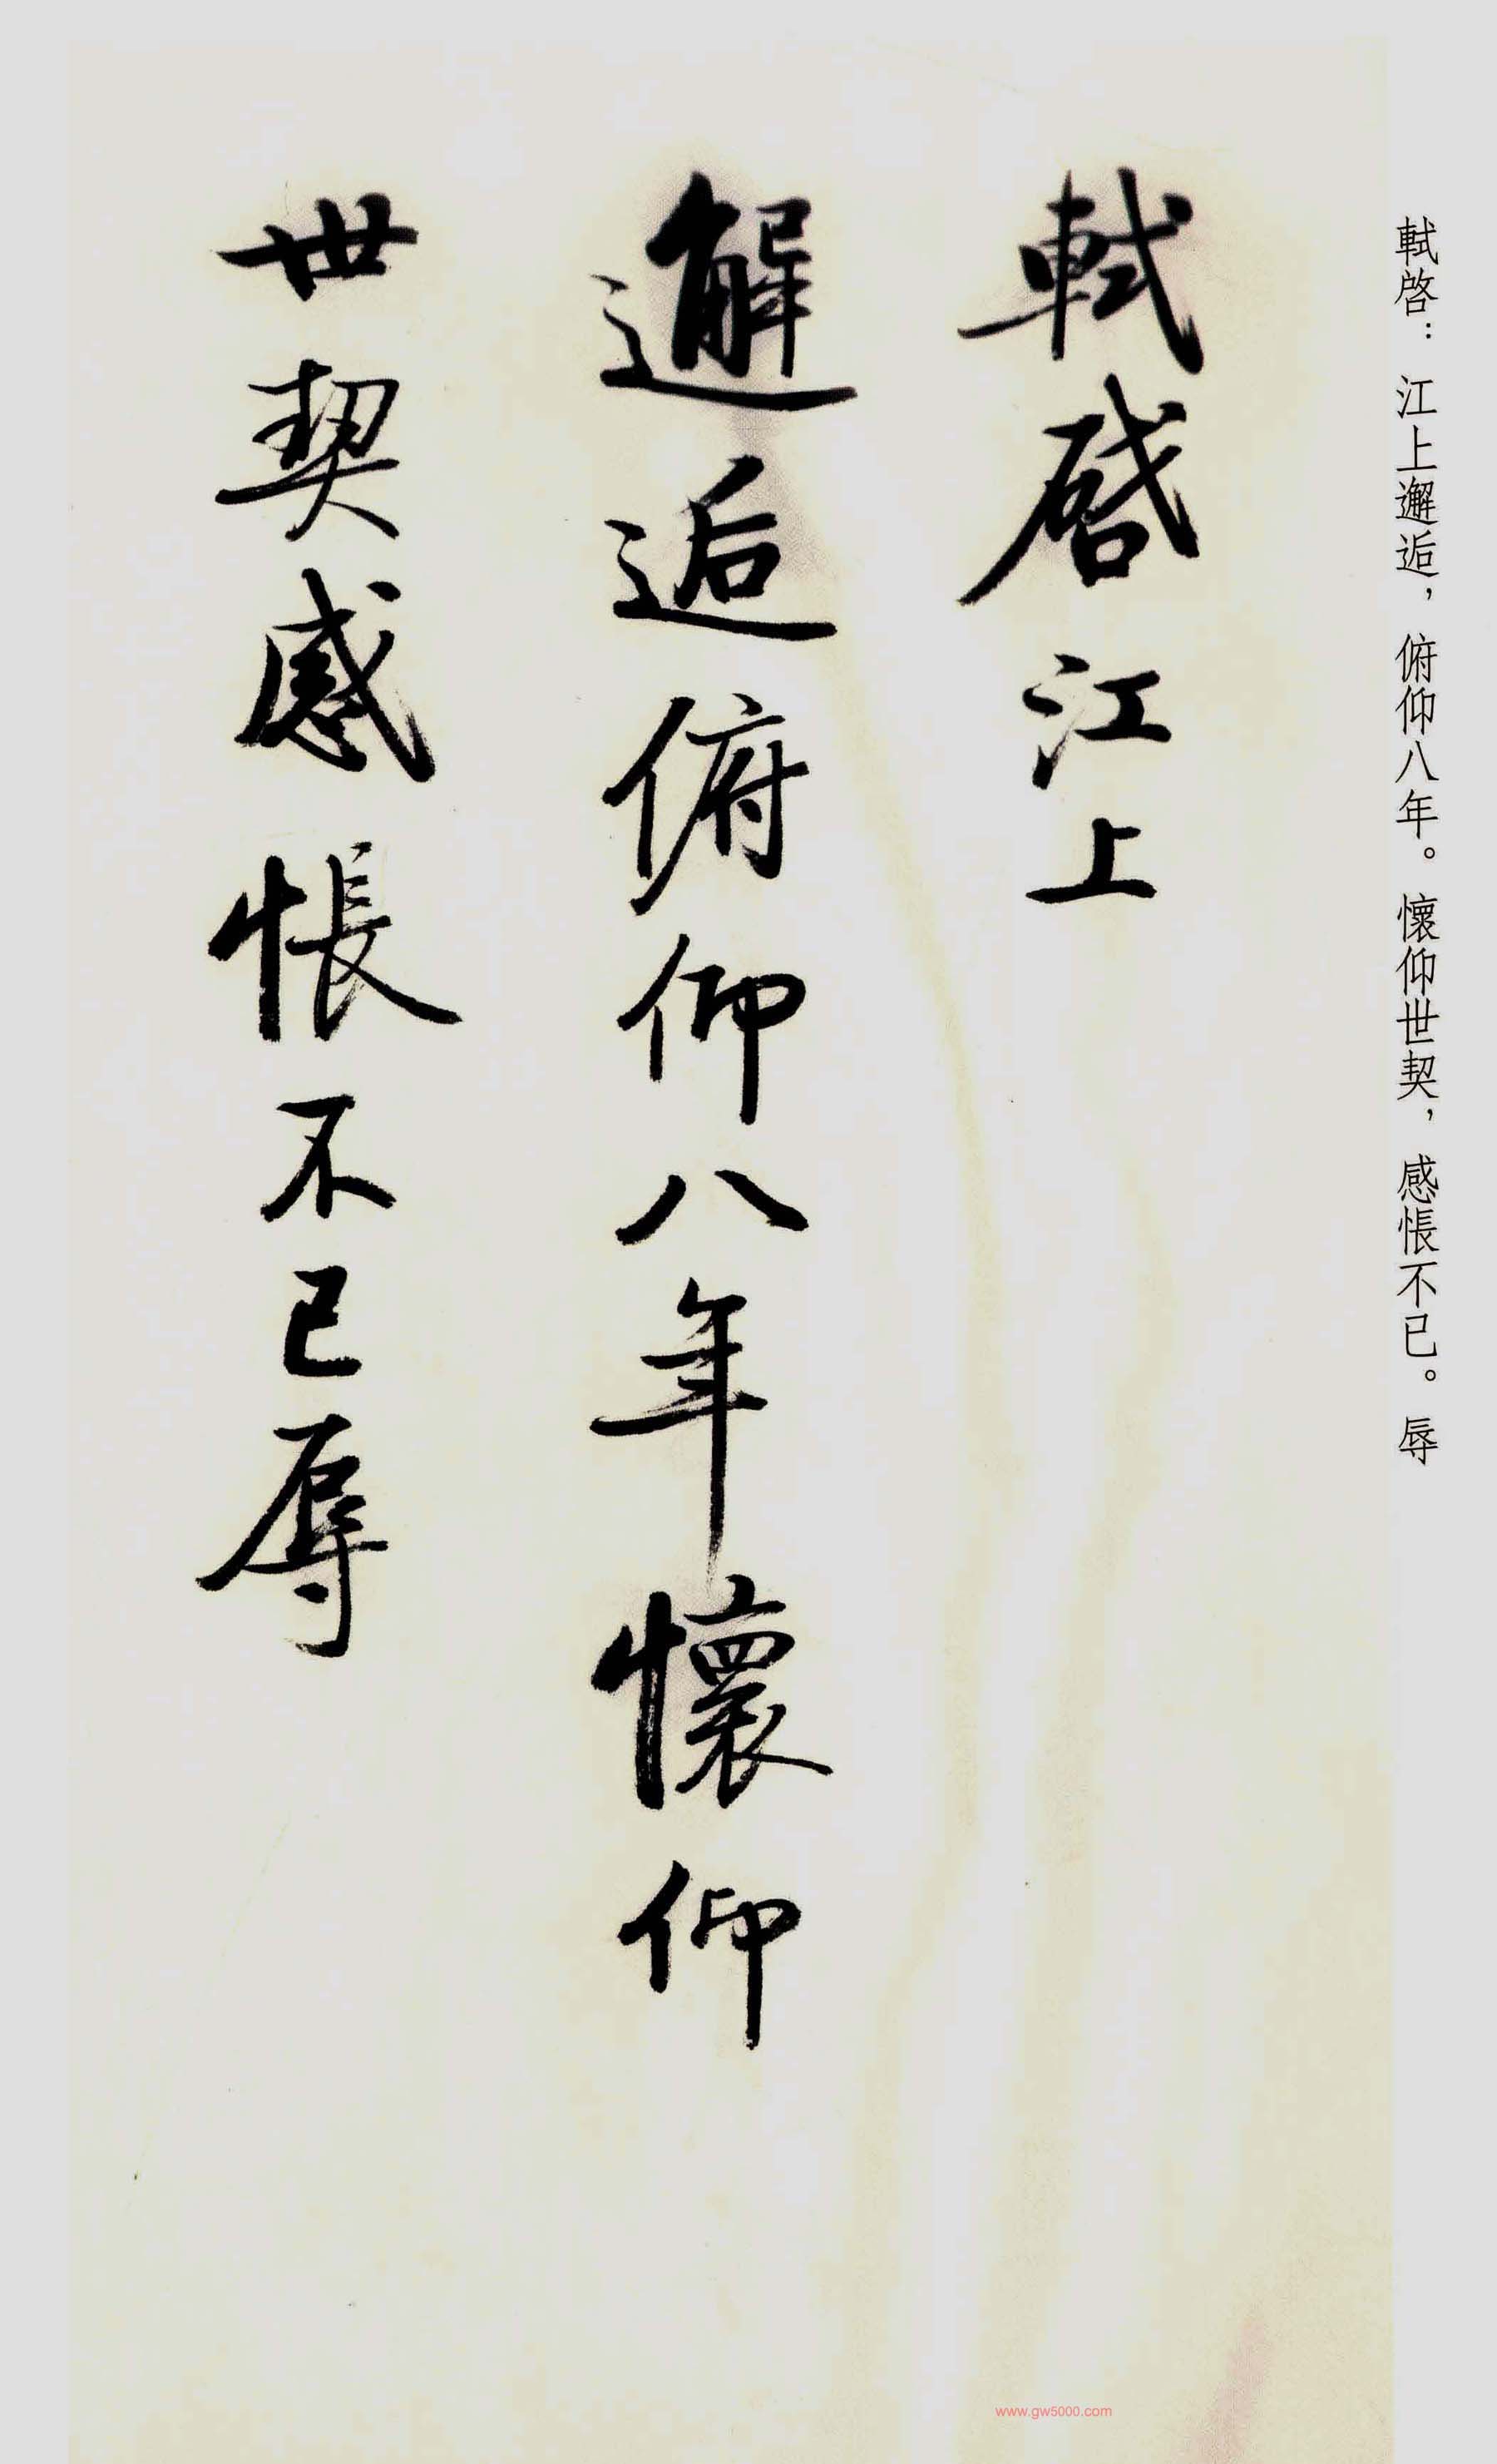 軾啓：江上邂逅，俯仰八年。懷仰世契，感悵不已。辱
軾啓江上
邂逅俯仰八年懷仰
世契感悵不已辱
www.gw5000.com